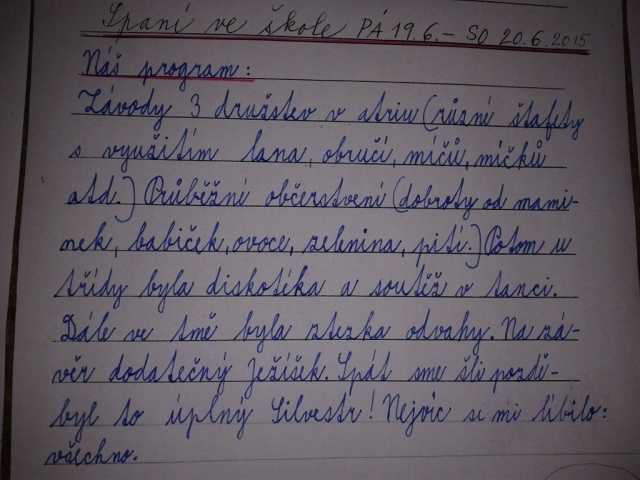 Spaní ve škole PÁ 19.6.– SO 20.6.2015
Náš program:
Závody 3 družstev v atriu (různé štafety
s využitím lana, obručí, míčů, míčků
atd.) Průběžní občerstvení (dobroty od mami-
nek, babiček, ovoce, zelenina, pití.) Potom u
třídy byla diskotéka a soutěž v tanci.
Dále ve tmě byla stezka odvahy. Na zá-
věr dodatečný Ježíšek. Spát sme šli pozdě-
byl to úplný Silvestr! Nejvíc se mi líbilo:
všechno.